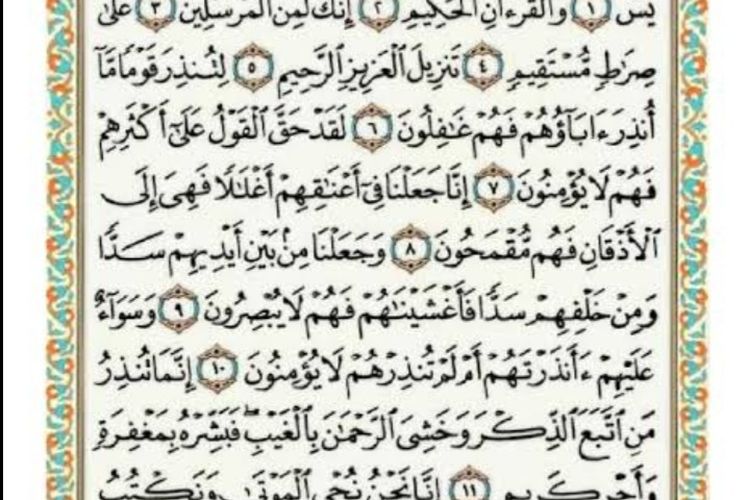 يسٓ ١ وَٱلْقُرْءَانِ ٱلْحَكِيمِ ٢ إِنَّكَ لَمِنَ ٱلْمُرْسَلِينَ ٣ عَلَىٰ
صِرَٰطٍ مُّسْتَقِيمٍ ٤ تَنزِيلَ ٱلْعَزِيزِ ٱلرَّحِيمِ ٥ لِتُنذِرَ قَوْمًا مَّآ
أُنذِرَ ءَابَآؤُهُمْ فَهُمْ غَٰفِلُونَ ٦ لَقَدْ حَقَّ ٱلْقَوْلُ عَلَىٰٓ أَكْثَرِهِمْ
فَهُمْ لَا يُؤْمِنُونَ ٧ إِنَّا جَعَلْنَا فِىٓ أَعْنَٰقِهِمْ أَغْلَٰلًا فَهِىَ إِلَى
ٱلْأَذْقَانِ فَهُم مُّقْمَحُونَ ٨ وَجَعَلْنَا مِنۢ بَيْنِ أَيْدِيهِمْ سَدًّا
وَمِنْ خَلْفِهِمْ سَدًّا فَأَغْشَيْنَٰهُمْ فَهُمْ لَا يُبْصِرُونَ ٩ وَسَوَآءٌ
عَلَيْهِمْ ءَأَنذَرْتَهُمْ أَمْ لَمْ تُنذِرْهُمْ لَا يُؤْمِنُونَ ١٠ إِنَّمَا تُنذِرُ
مَنِ ٱتَّبَعَ ٱلذِّكْرَ وَخَشِىَ ٱلرَّحْمَٰنَ بِٱلْغَيْبِ ۖ فَبَشِّرْهُ بِمَغْفِرَةٍ
وَأَجْرٍ كَرِيمٍ ١١ إِنَّا نَحْنُ نُحْىِ ٱلْمَوْتَىٰ وَنَكْتُبُ